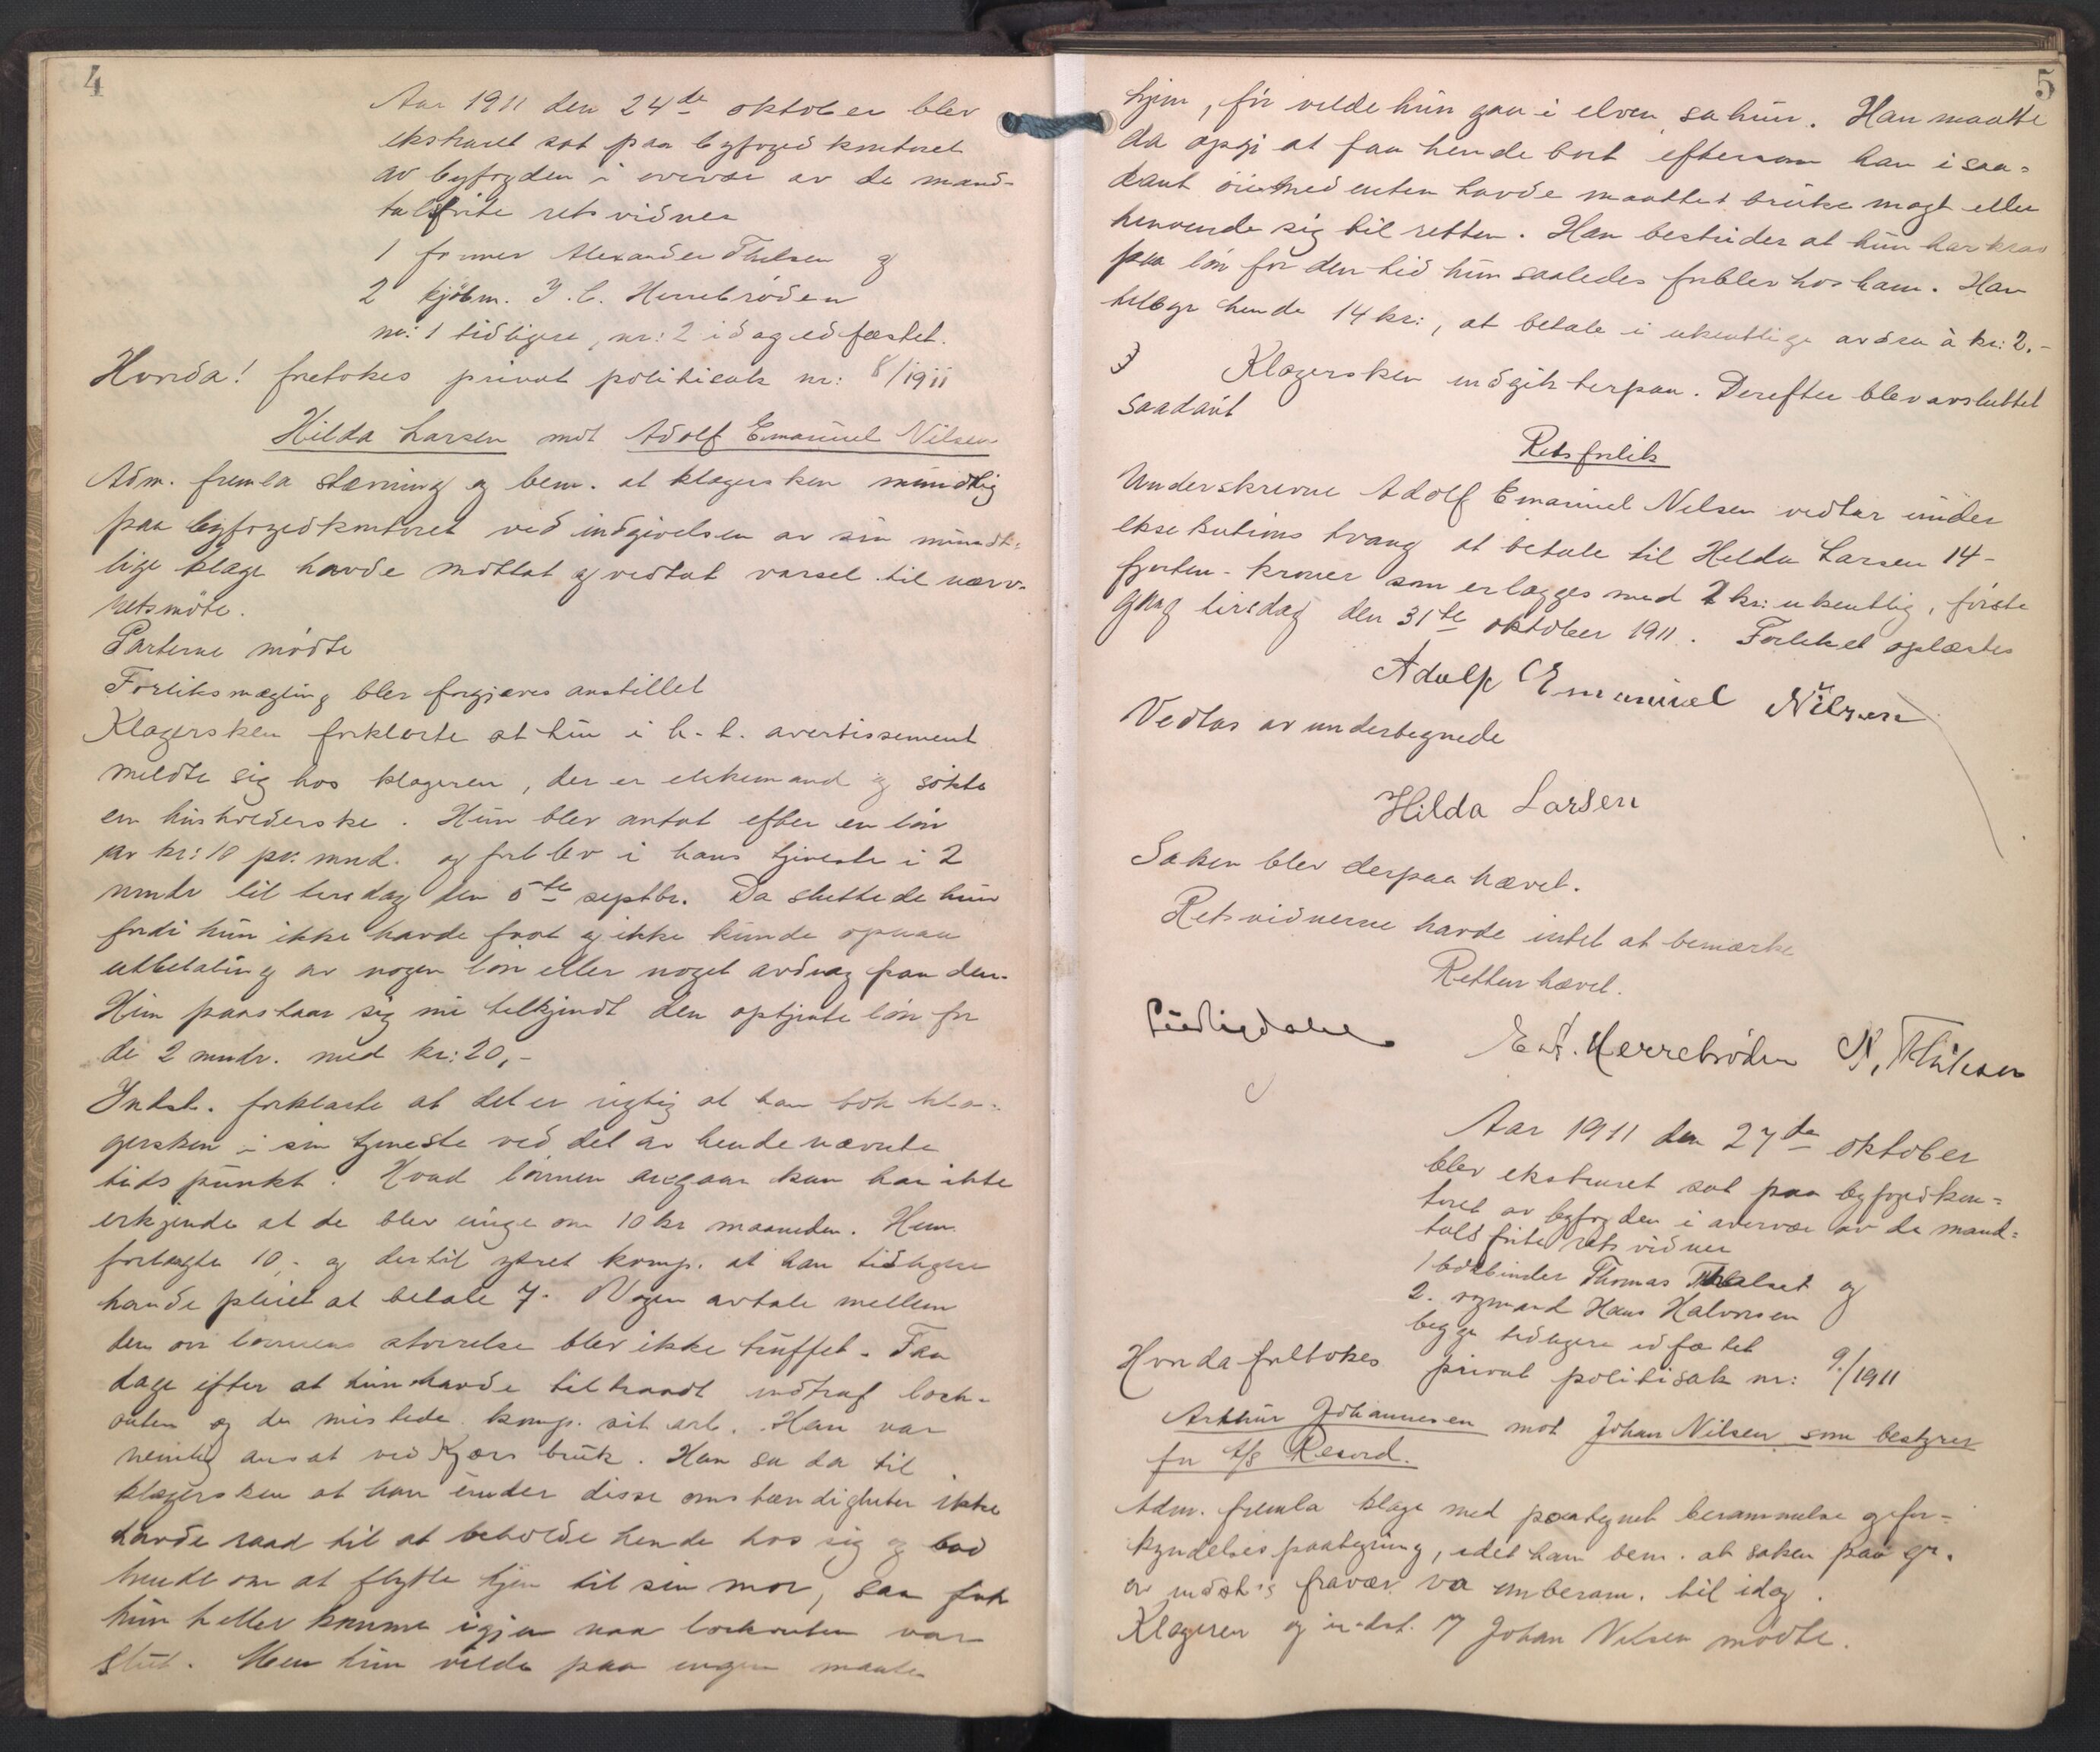 4
Aar 1911 den 24de oktober blev
ekstraret sat paa byfogedkontoret
av byfogden i overvær av de mand-
talsførte retsvidner
1 former Alexander Thilesen og
2 kjøbm. J. C. Herrebrøden
nr: 1 tidligere, nr: 2 idag edfæstet.
Hvorda! foretokes privat politisak nr: 8/1911
Hilda Larsen mot Adolf Emanuel Nilsen
Adm. fremla stævning og bem. at klagersken mundtlig
paa byfogedkontoret ved indgivelsen av sin mundt-
lige klage havde mottat og vedtat varsel til nærv.
retsmøte.
Parterne mødte
Forliksmægling blev forgjæves anstillet
Klagersken forklarte at hun i h. t. avertissement
meldte sig hos klageren, der er enkemand og søkte
en husholderske. Hun blev antat efter en løn
av kr: 10 pr. mnd. og forblev i hans tjeneste i 2
mndr til tirsdag den 5te septbr. Da sluttede hun
fordi hun ikke havde faat og ikke kunde opnaa
utbetaling av nogen løn eller noget avdrag paa den.
Hun paastaar sig nu tilkjendt den optjente løn for
de 2 mndr. med kr: 20,-
Indst. forklarte at det er rigtig at han tok kla-
gersken i sin tjeneste ved det av hende nævnte
tidspunkt. Hvad lønnen angaar kan han ikke
erkjende at de blev enige om 10 kr maaneden. Hun
forlangte 10,- og dertil ytret komp. at han tidligere
havde pleiet at betale 7.- Nogen avtale mellem
dem om lønnens størrelse blev ikke truffet. Faa
dage efter at hun havde tiltraadt indtraf lock-
outen og da mistede komp. sit arb. Han var
nemlig ansat ved Kjærs bruk. Han sa da til
klagersken at han under disse omstændigheter ikke
havde raad til at beholde hende hos sig og bad
hende om at flytte hjem til sin mor, saa fik
hun heller komme igjen naar lockouten var
slut. Men hun vilde paa ingen maate
5
hjem, før vilde hun gaa i elven, sa hun. Han maatte
da opgi at faa hende bort eftersom han i saa-
dant øiemed enten havde maattet bruke magt eller
henvende sig til retten. Han bestrider at hun har krav
paa løn for den tid hun saaledes forblev hos ham. Han
tilbyr hende 14 kr:, at betale i ukentlige avdrag à kr: 2.-
Klagersken indgik herpaa. Derefter blev avsluttet
saadant
Retsforlik
Underskrevne Adolf Emanuel Nilsen vedtar under
eksekutions tvang at betale til Hilda Larsen 14-
fjorten- kroner som erlægges med 2 kr: ukentlig, første
gang tirsdag den 31te oktober 1911. Forliket oplæstes
Adolf Emanuel Nilsen
Vedtas av undertegnede
Hilda Larsen
Saken blev derpaa hævet.
Retsvidnerne havde intet at bemærke
Retten hævet.
Herrebrøden A. Thilesen
Aar 1911 den 27de oktober
blev ekstraret sat paa byfogedkon-
toret av byfogden i overvær av de mand-
talsførte retsvidner
1 bokbinder Thomas og
2. Hans Halvorsen
begge tidligere edfæstet
Hvorda foretokes privat politisak nr: 9/1911
Arthur Johannesen mot Johan Nilsen som bestyrer
for A/S Record.
Adm. fremla klage med paategnet berammelse og for-
kyndelsespaategning, idet han bem. at saken paa gr.
av indst.s fravær va omberam. til idag.
Klageren og indst. Johan Nilsen mødte.